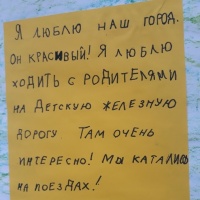 Я люблю наш город.
Он красивый! Я люблю
ходить с родителями
на Детскую железную
дорогу Там очень
интересно! Мы катались
на поездах!